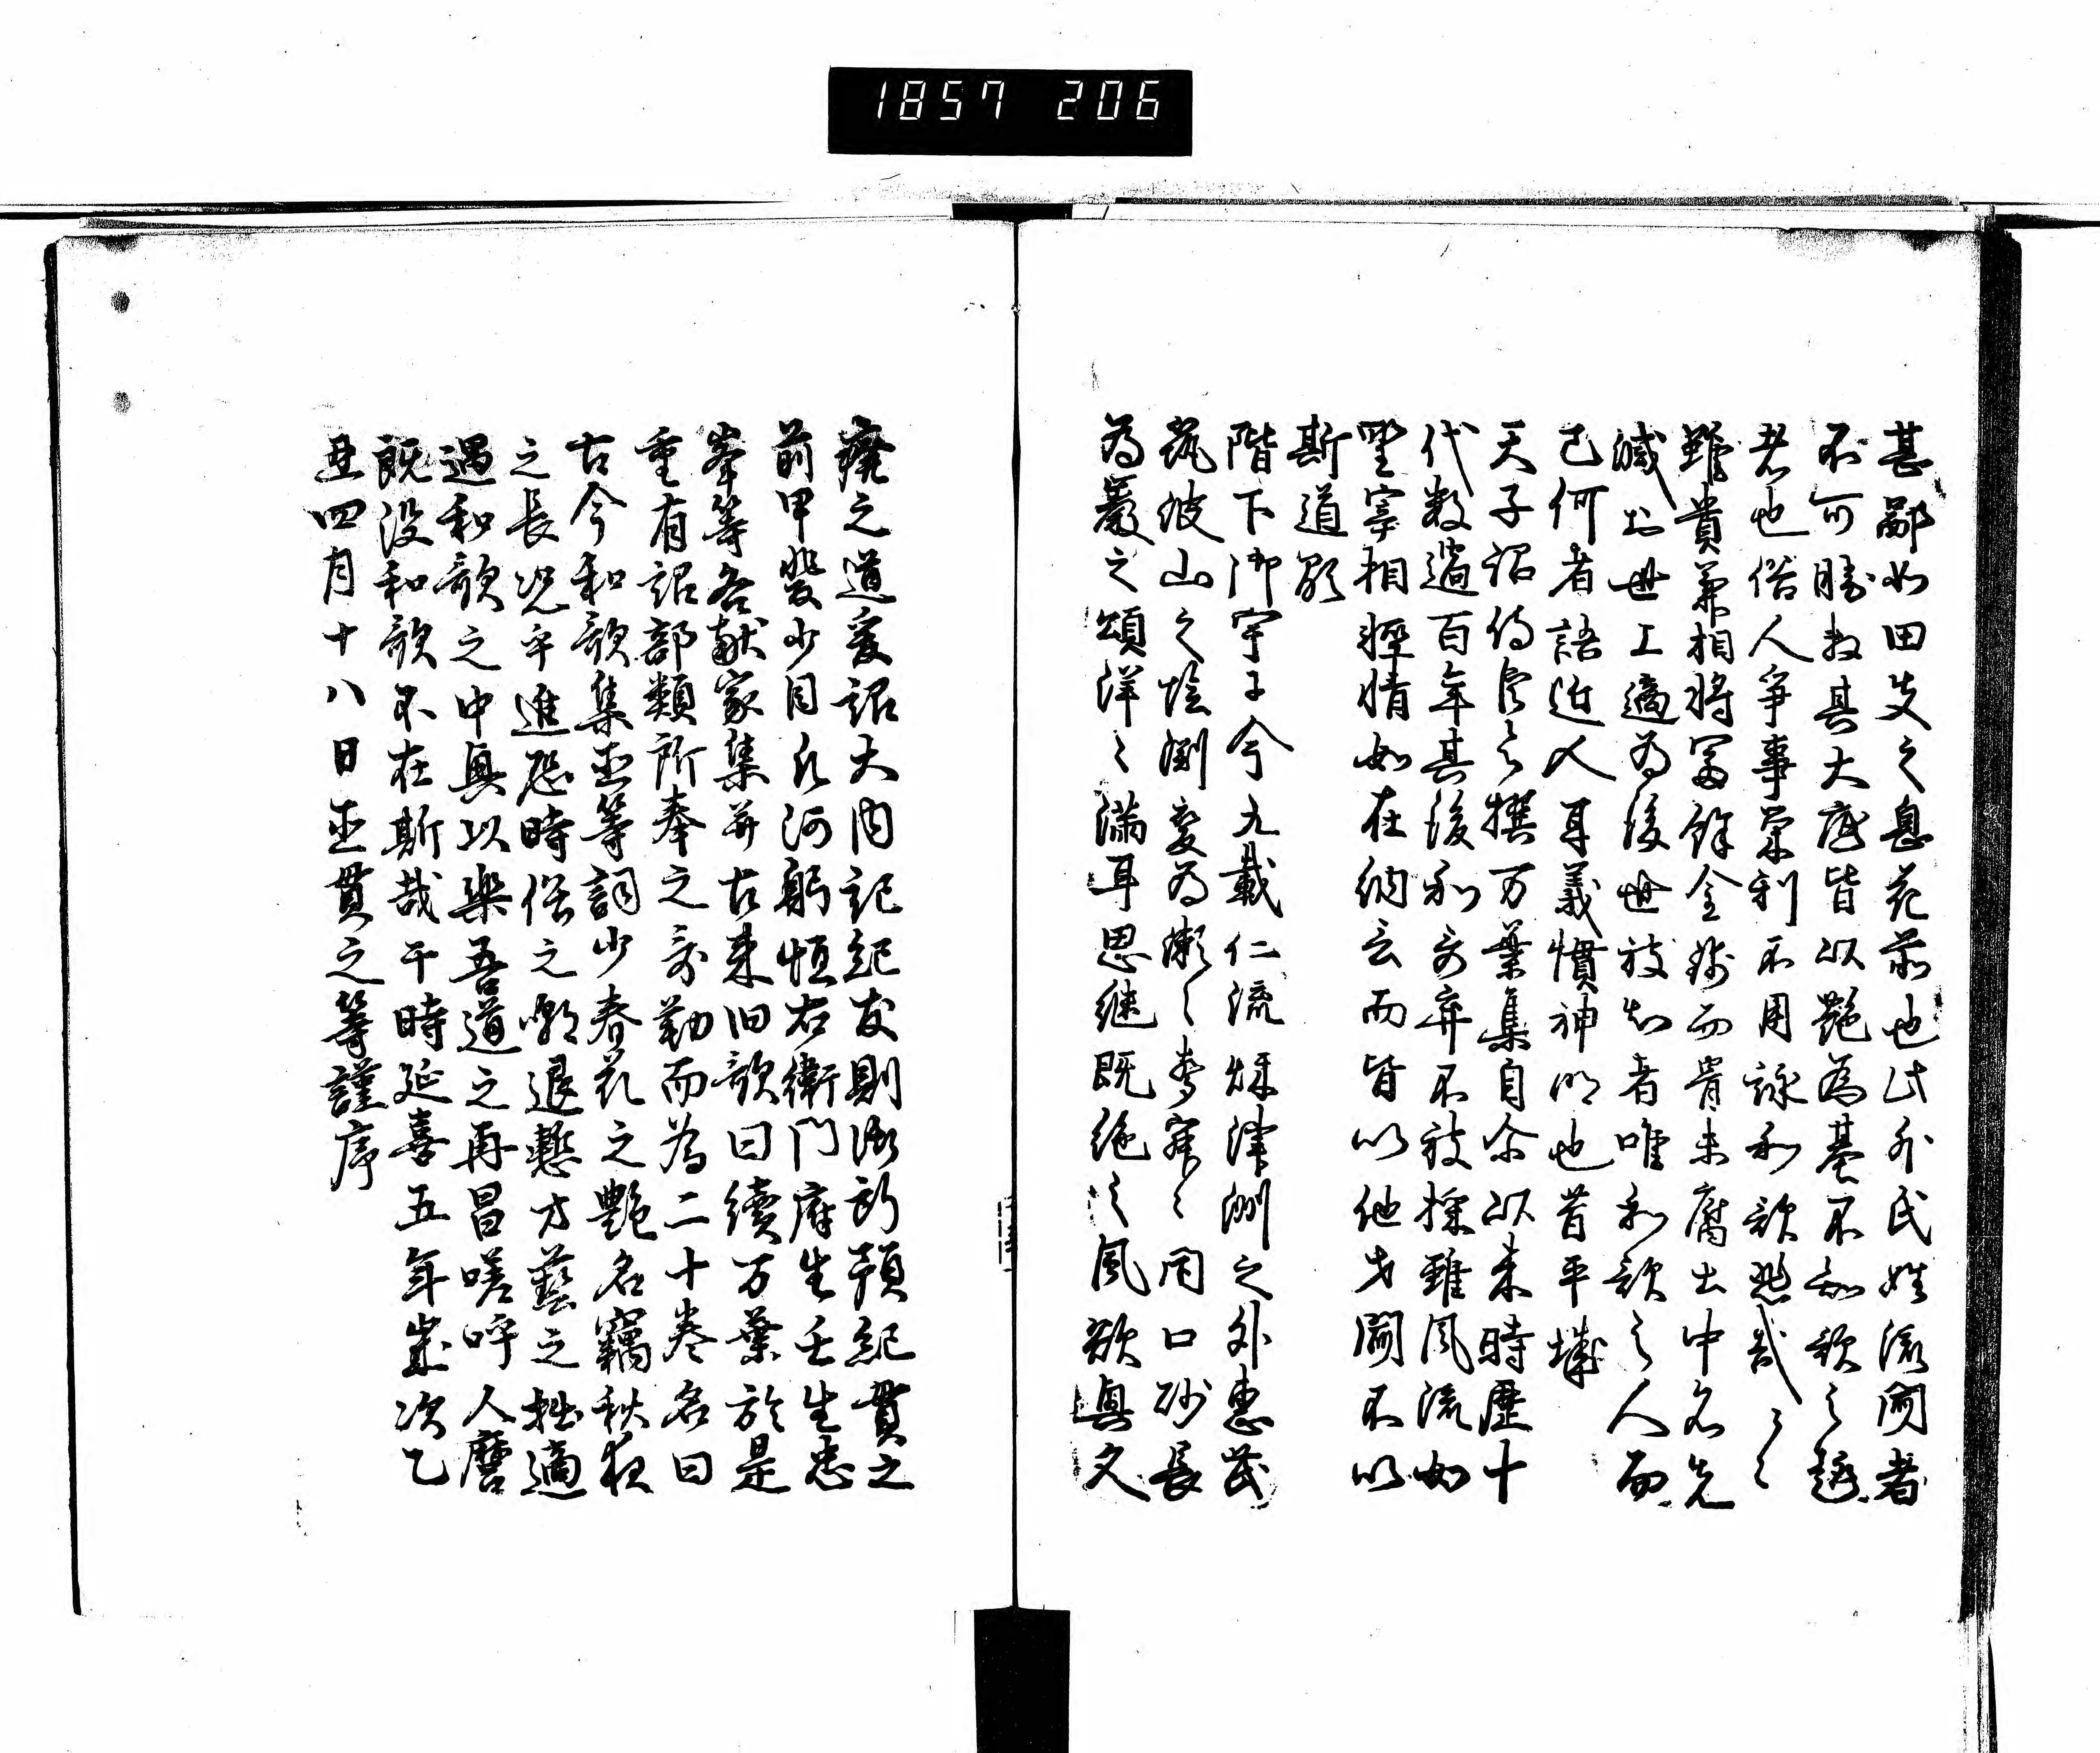 1857 206
甚鄙如田夫之息花前也此外氏姓流聞者
不可勝数其大底皆以艶為基不知歌之趣
者也俗人争事栄利不用詠和歌悲哉〻〻
雖貴兼相将冨餘金錢而骨未腐土中名先
滅於世上適為後世被知者唯和歌之人而
已何者語近人耳義慣神明也昔平城
天子詔侍臣令撰万葉集自尓以来時歴十
代数過百年其後和哥弃不被採雖風流如
野宰相軽情如在納言而皆以他才聞不以
斯道顕
階下御宇于今九載仁流秋津洲之外恵茂
筑波山之陰渕変為瀬〻声寂〻閇口砂長
為巌之頌洋〻満耳思継既絶之風欲興久
廃之道爰詔大内記紀友則御書所預紀貫之
前甲斐少目凡河躬恒右衛門府生壬生忠
岑等各献家集并古来旧歌曰續万葉於是
重有詔部類所奉之哥勒而為二十巻名曰
古今和歌集臣等詞少春花之艶名竊秋夜
之長况乎進恐時俗之嘲退慙才藝之拙適
遇和歌之中興以楽吾道之再昌嗟呼人麿
既没和歌不在斯哉干時延喜五年歳次乙
丑四月十八日臣貫之等謹序